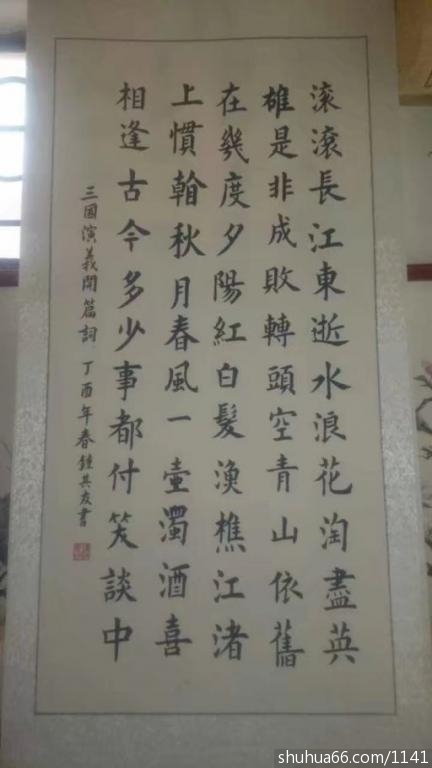 滚滾長江東逝水浪花淘盡英
雄是非成敗轉頭空青山依舊
在幾度夕陽紅白髮漁樵江渚
上慣看秋月春風一壺濁酒喜
相逢古今多少事都付笑談中
三國演義開篇詞 丁酉年春鍾其友書
shuhua66.com/1141